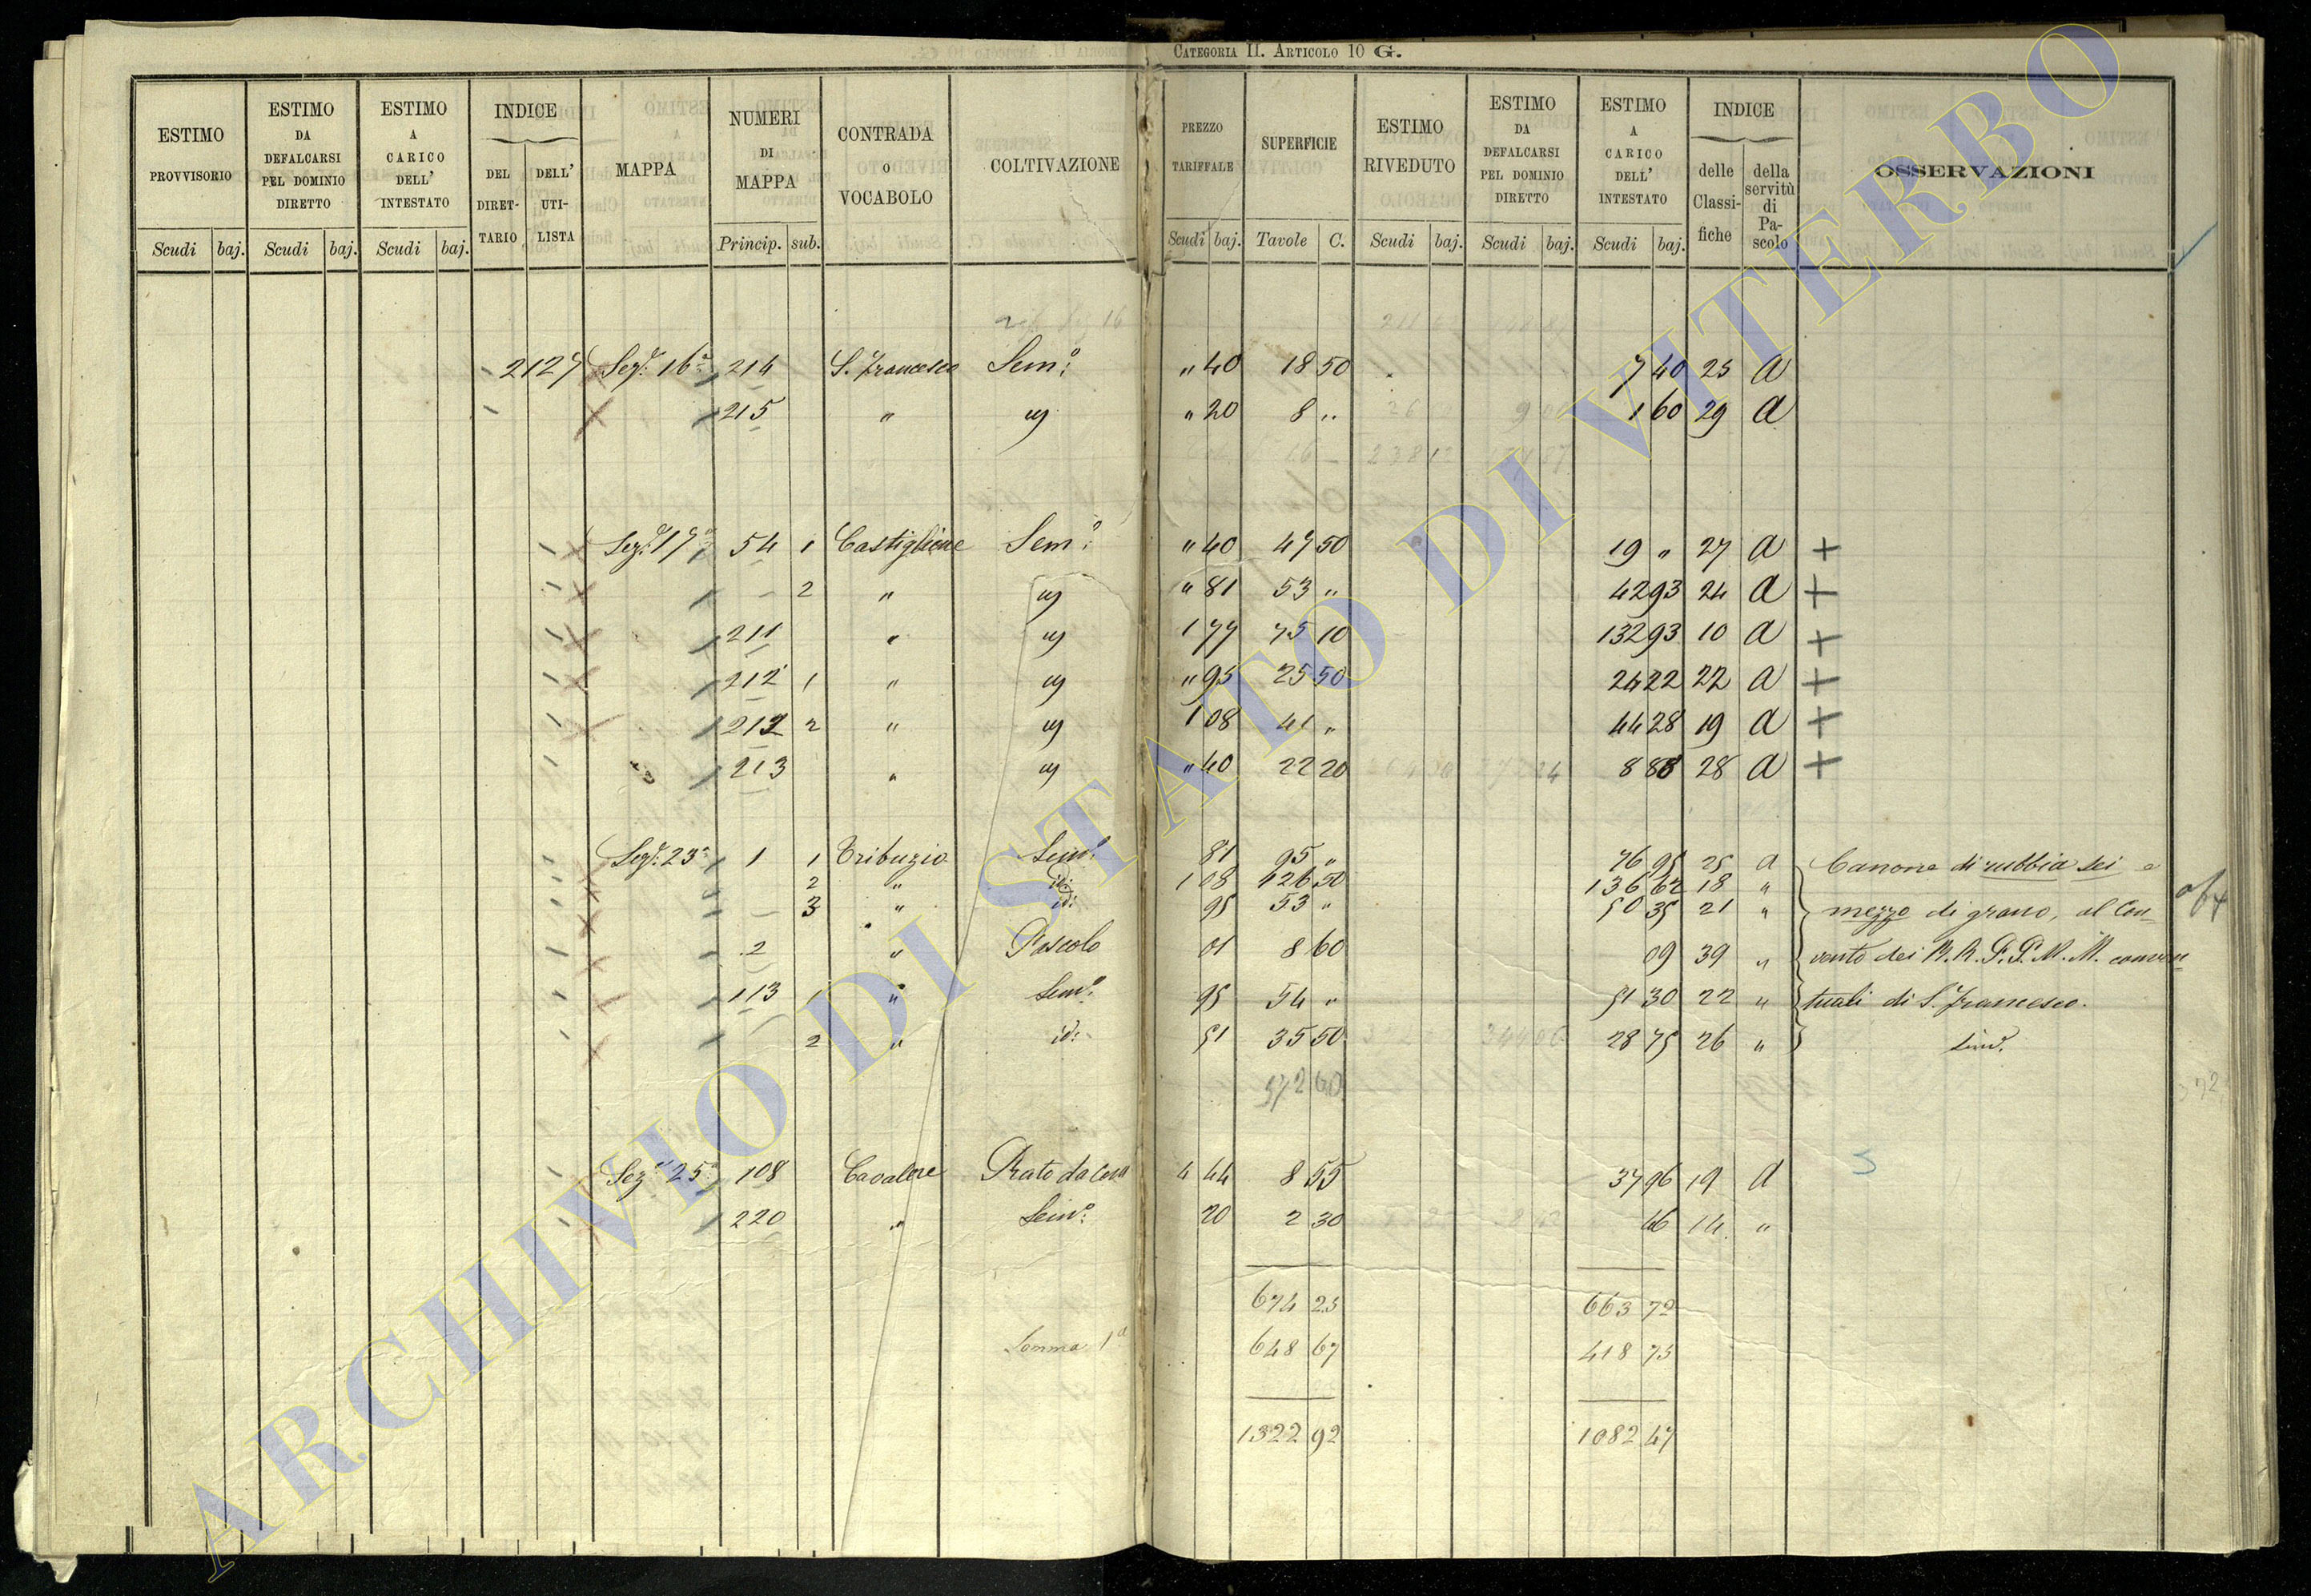 CATEGORIA II. ARTICOLO 10 G.
ESTIMO PROVVISORIO | ESTIMO DA DEFALCARSI PEL DOMINIO DIRETTO | ESTIMO A CARICO DELL' INTESTATO | INDICE DEL DIRETTARIO | DELL' UTILISTA | MAPPA | NUMERI DI MAPPA | CONTRADA O VOCABOLO | COLTIVAZIONE | PREZZO TARIFFALE | SUPERFICIE | ESTIMO RIVEDUTO | ESTIMO DA DEFALCARSI PEL DOMINIO DIRETTO | ESTIMO A CARICO DELL' INTESTATO | INDICE delle Classifiche | della servitù di Pascolo | OSSERVAZIONI
Scudi baj. Scudi baj. Scudi baj. Princip. sub. Scudi baj. Tavole C. Scudi baj. Scudi baj. Scudi baj.
2127 Sez.e 16a 214 S. Francesco Sem.o " 40 18 50 7 40 25 a
215 " " 20 8 " 1 60 29 a
Sez.e 17a 54 1 Castiglione Sem.o " 40 47 50 19 " 27 a +
2 " " 81 53 " 42 93 24 a +
211 " 1 77 75 10 132 93 10 a +
212 1 " " 95 25 50 24 22 22 a +
212 2 " 1 08 41 " 44 28 19 a +
213 " " 40 22 20 8 88 28 a +
Sez.e 23a 1 1 Tribuzio Sem.o 81 95 " 76 95 25 a Canone di rubbia sei e
2 " id: 1 08 126 50 136 62 18 "
3 " id: 95 53 " 50 35 21 " mezzo di grano, al Con-
2 " Pascolo 01 8 60 09 39 " vento dei R.R. P.P. M.M. conven-
113 1 " Sem.o 95 54 " 51 30 22 " tuali di S. Francesco.
2 " id: 81 35 50 28 75 26 "
372 60
Sez.e 25a 108 Cavalere Prato da 4 44 8 55 37 96 19 a
220 " Sem.o 20 2 30 46 14 "
674 25 663 72
Somma 1a 648 67 418 75
1322 92 1082 47
ARCHIVIO DI STATO DI VITERBO